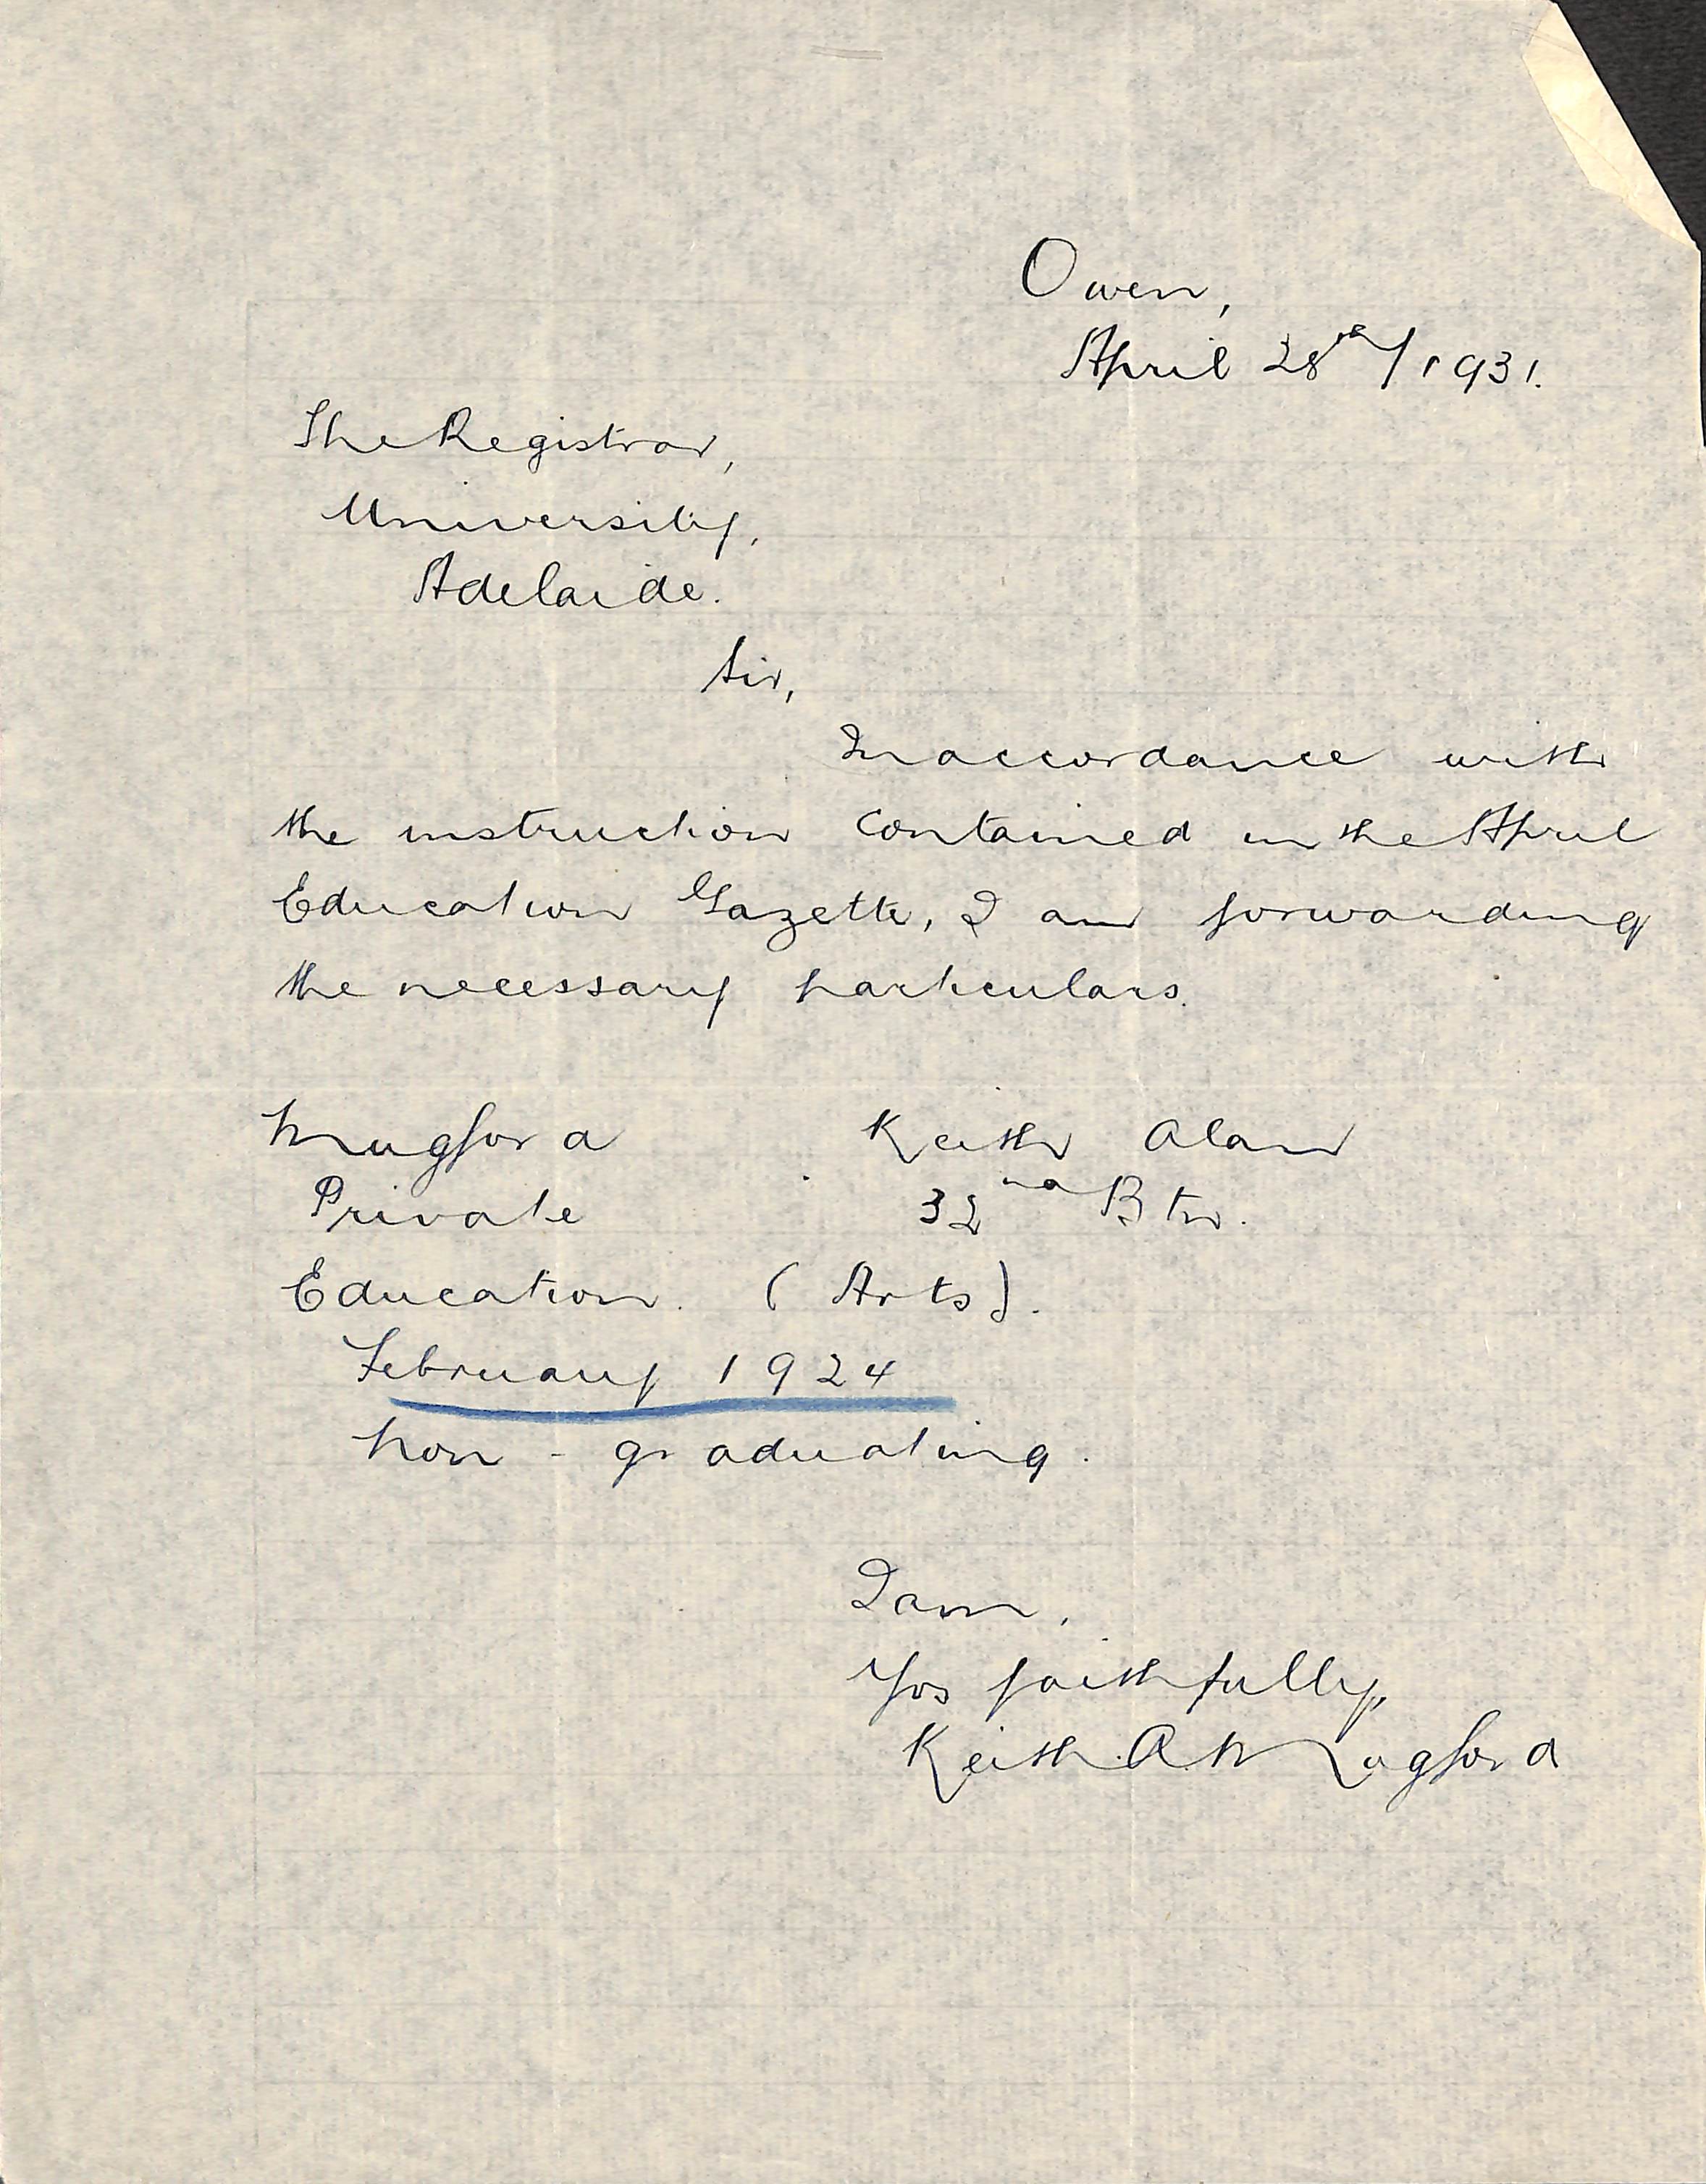 Owen,
April 28th/1931.
The Registrar,
University,
Adelaide.
Sir,
In accordance with
the instruction contained in the April
Education Gazette, I am forwarding
the necessary particulars.
Mugford Keith Alan
Private 32nd Btn.
Education. (Arts).
February 1924
Non-graduating.
I am,
Yrs faithfully,
Keith A Mugford